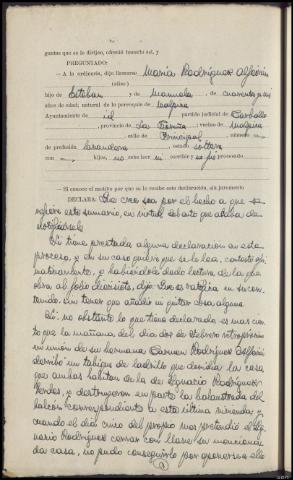 guntas que se le dirijan, ofreció hacerlo así, y
PREGUNTADO:
— A la ordinaria, dijo llamarse María Rodríguez Alfeirán
hijo de Esteban y de Manuela de cuarenta y seis
años de edad; natural de la parroquia de Malpica
Ayuntamiento de id partido judicial de Carballo
, provincia de La Coruña, vecino de Malpica
calle de Principal, número
de profesión labradora, estado soltera
con — hijos, no sabe leer ni escribir y no fué procesado
— Si conoce el motivo por que se le recibe esta declaración, sin juramento
DECLARA: Que cree sea por el hecho a que se
refiere este sumario, en virtud del auto que acaba de
notificársele
Si tiene prestada alguna declaracion en esta
procesa, y en su caso quiere que se le lea, contestó afir
mativamente, y habiéndole dado lectura de la que
obra al folio diecisiete, dijo: Que se ratifica en su conte-
nido, sin tener que añadir ni quitar cosa alguna
Si no obstante lo que tiene declarado es mas cier-
to que la mañana del día dos de Febrero retropróximo
en unión de su hermana Carmen Rodríguez Alfeirán
derribó un tabique de ladrillo que dividia la casa
que ambas habitan de la de Ignacio Rodriguez
Verdes, y destruyeron en parte la balaustrada del
balcón correspondiente a esta última vivienda; y
cuando el día cinco del propio mes pretendió el Ig-
nacio Rodríguez cerrar con llave su mencionada
casa, no pudo conseguirlo por oponerse ella